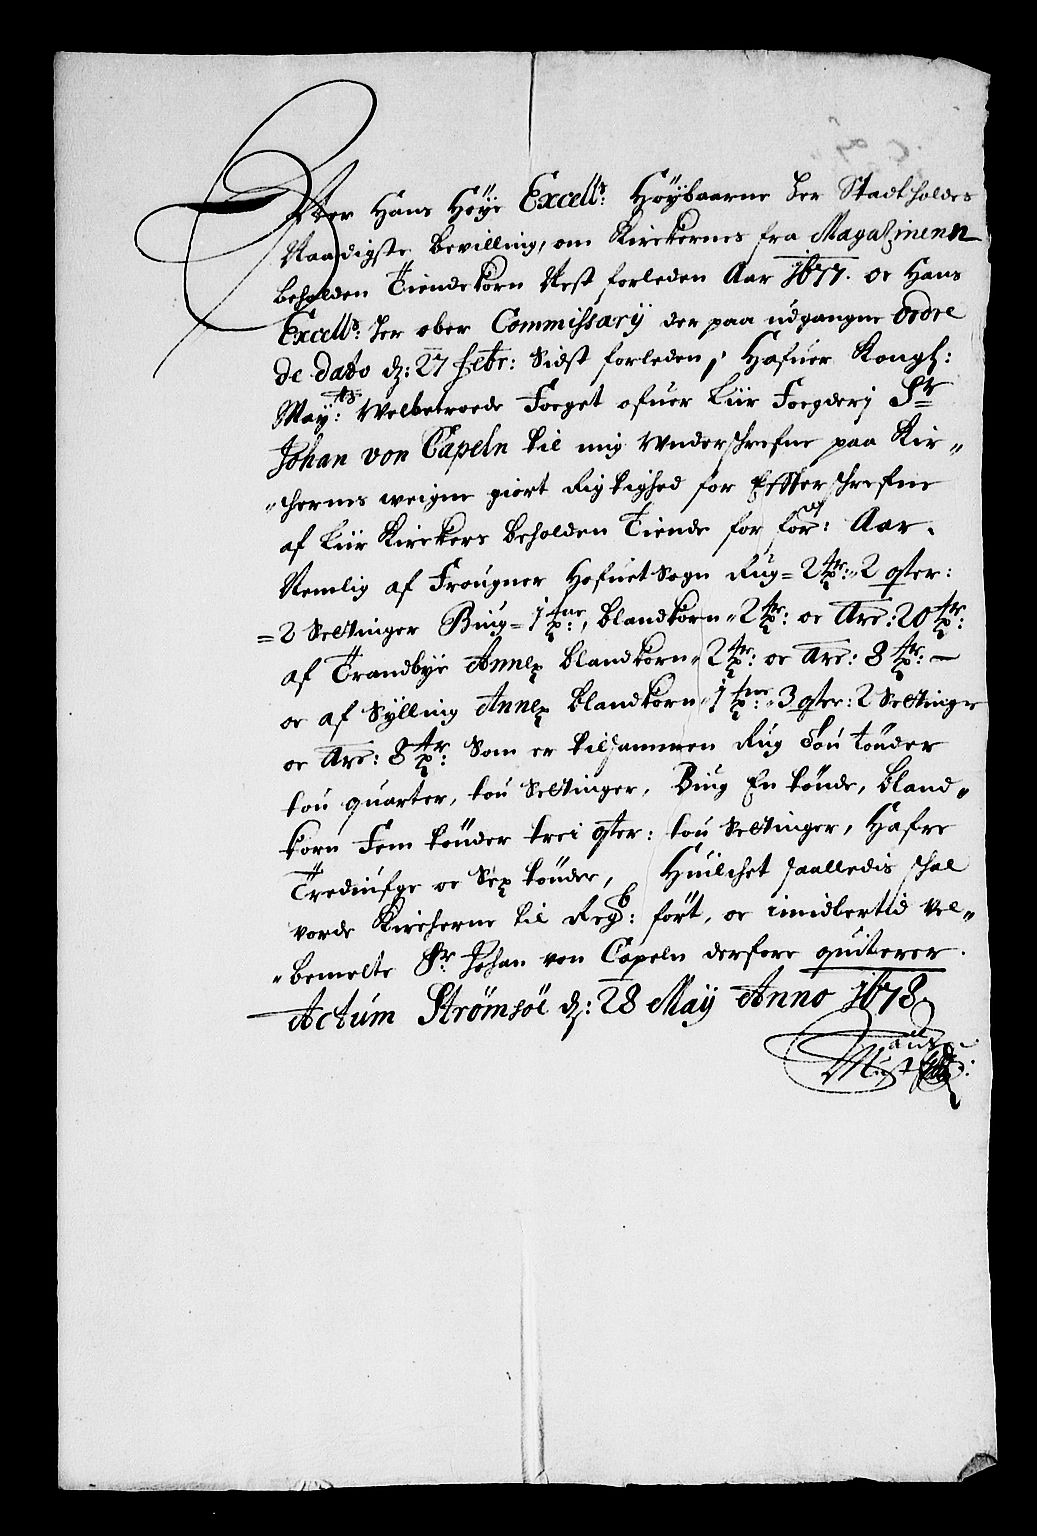 Efter Hans Höye Excell:s Höybaarne Her Stadtholdes
Naadigste bevilling, om Kirckernes fra Magasinenn
beholden Tiendekorn Nest forleden Aar 1677. oc Hans
Excell:s Her ober Commissary der paa udgangne Ordre
de dato dz: 27 Febr: Sidst forleden, Hafuer Kongl:
May:ts Welbetroede Foeget ofuer Liir Foegderj Sr
Johan von Capeln til mig Underschrefne paa Kir„
„chernes weigne giort Rigtighed for Effterschrefne
af Liir Kirckers beholden Tiende for for: Aar.
Nemlig af Frougner HofuetSogn Rug = 2 tr: „ 2 qter:
= 2 Settinger Biug = 1 tne:, blandkorn „ 2 tr: oc Are: 20 tr:
af Trandbye Annex blandkorn „ 2 tr: oc Are: 8 tr: —
oc af Sylling Annex blandkorn „ 1 tne: „ 3 qter: 2 Settinger
oc Are: 8 tr: Som er tilsammen Rug Tou tönder
tou quarter, tou Settinger, Biug En tönde, bland„
korn Fem tönder trei qter: tou Settinger, Hafre
Trediufge oc Sex tönder, Huilchet saalledis schal
vorde Kircherne til Regb: fört, oc imidlertid vel„
„bemelte Sr: Johan von Capeln derfore quiterer.
Actum Strømsøe dz: 28 Maÿ Anno 1678
Hans